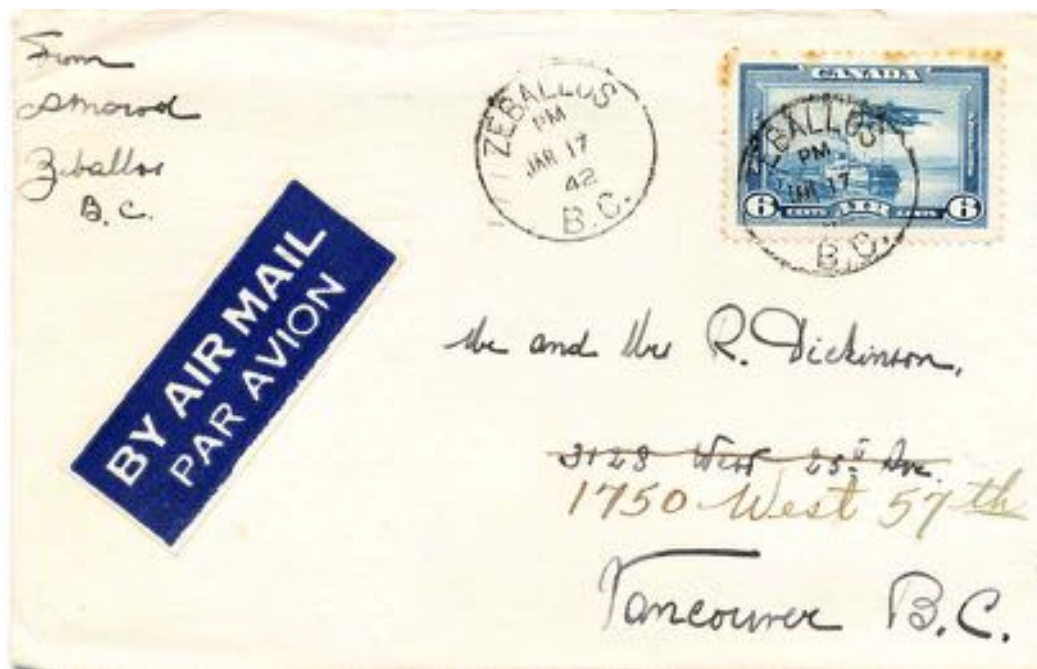 From
Zeballos
B.C.
ZEBALLOS
PM
JAN 17
42
B.C.
CANADA
6 CENTS AIR CENTS 6
ZEBALLOS
PM
JAN 17
B.C.
BY AIR MAIL
PAR AVION
Mr and Mrs R. Dickinson,
3123 West 25th Ave.
1750 West 57th
Vancouver B.C.